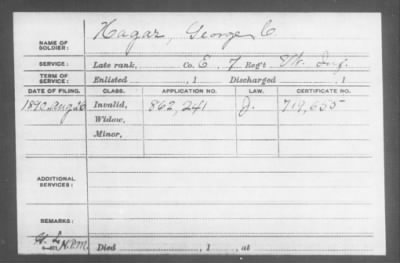 NAME OF SOLDIER: Hagar, George C
SERVICE: Late rank, Co. E, 7 Reg't Vt. Inf.
TERM OF SERVICE: Enlisted , 1 Discharged , 1
DATE OF FILING. CLASS. APPLICATION NO. LAW. CERTIFICATE NO.
1890 Aug 26 Invalid, 862,241 J. 719,655
Widow,
Minor,
ADDITIONAL SERVICES:
REMARKS:
Died , 1 , at